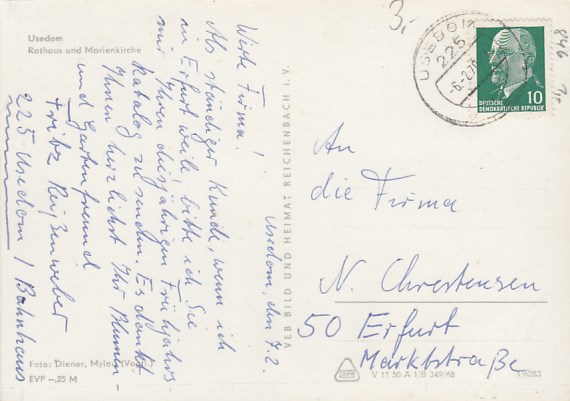 Usedom
Rathaus und Marienkirche
3,-
USEDOM
225
-6.2.70
DEUTSCHE
DEMOKRATISCHE REPUBLIK
10
846
Usedom, den 7.2.
Werte Firma!
Als ständiger Kunde, wenn ich
in Erfurt weile bitte ich Sie
mir Ihren diesjährigen Frühjahrs-
katalog zu senden. Es dankt
Ihnen herzlichst Ihr Blumen-
und Gartenfreund
Fritz Reißenweber
225 Usedom / Bahnhaus
VEB BILD UND HEIMAT REICHENBACH I. V.
An
die Firma
N. Chrestensen
50 Erfurt
Marktstraße
Foto: Diener, Mylau (Vogtl.)
EVP -,25 M
V 11 50 A 1/B 349/68
1/6283